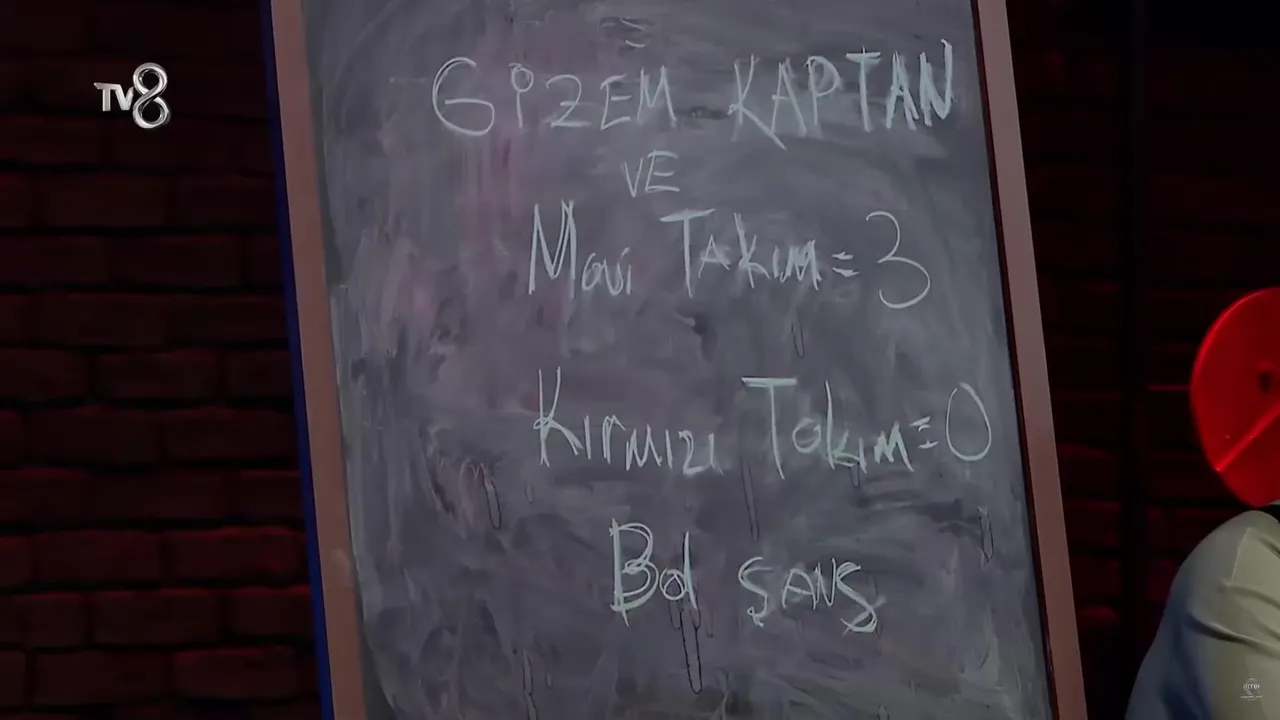 TV8
GİZEM KAPTAN
VE
Mavi TAKım = 3
Kırmızı Takım = 0
Bol ŞANŞ